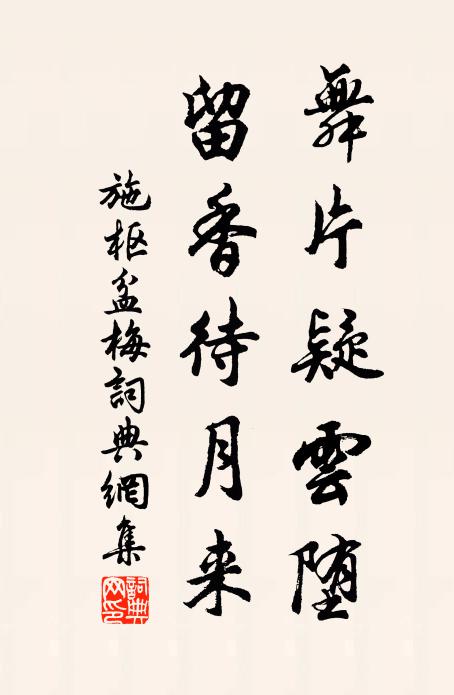 舞片疑雲堕
留香待月来
施枢盆梅詞典網集
詞典網印